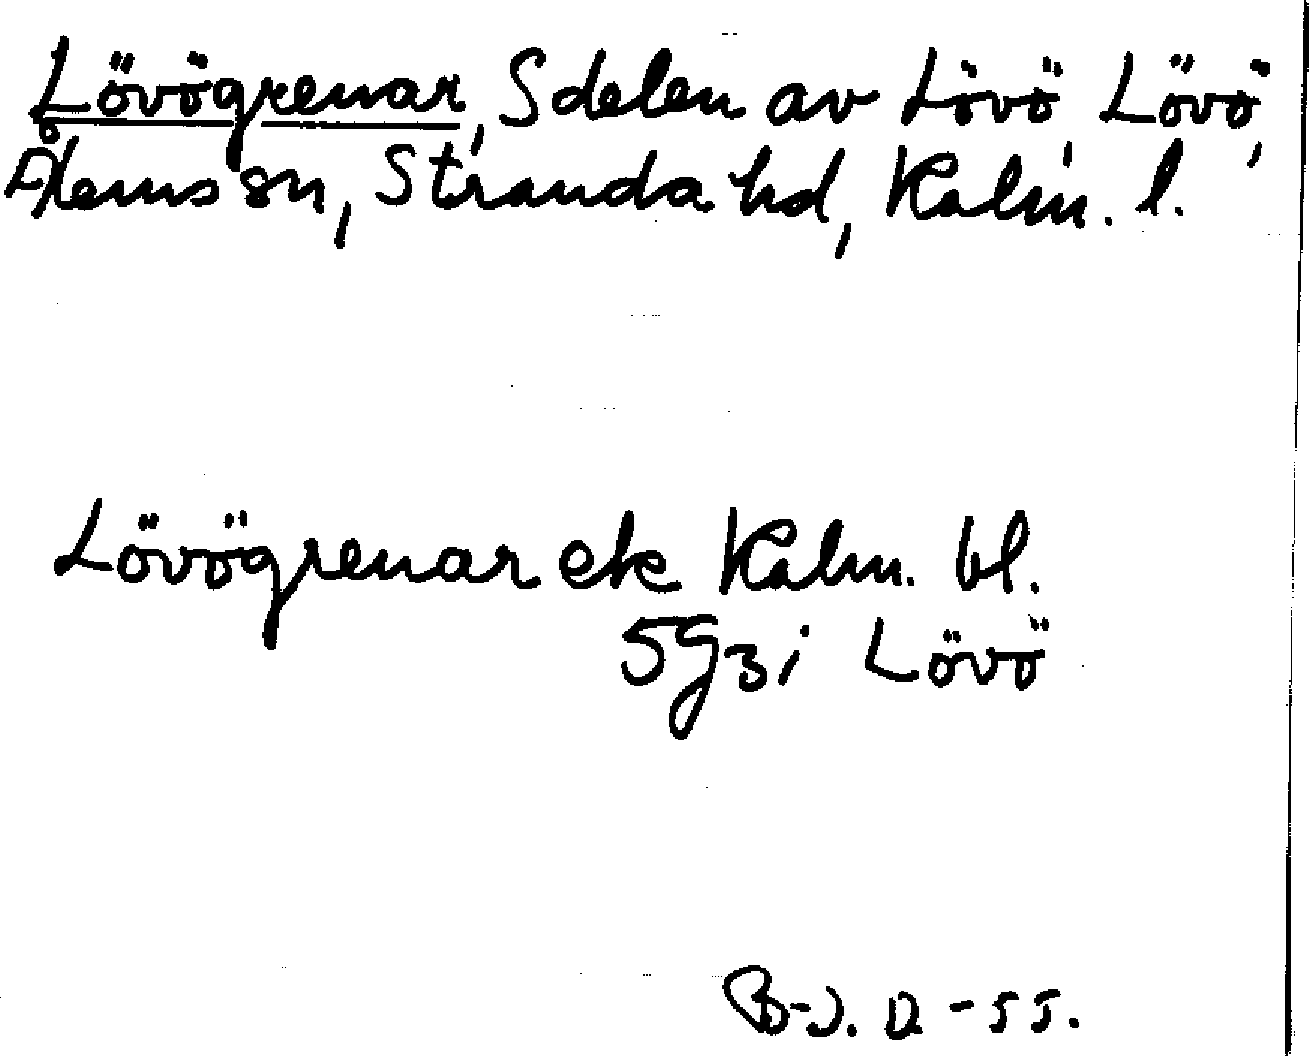 Lövögrenar, S delen av Lövö, Lövö,
Ålems sn, Stranda hd, Kalm. l.
Lövögrenar ek Kalm. bl.
5g3i Lövö
B-J. D -55.